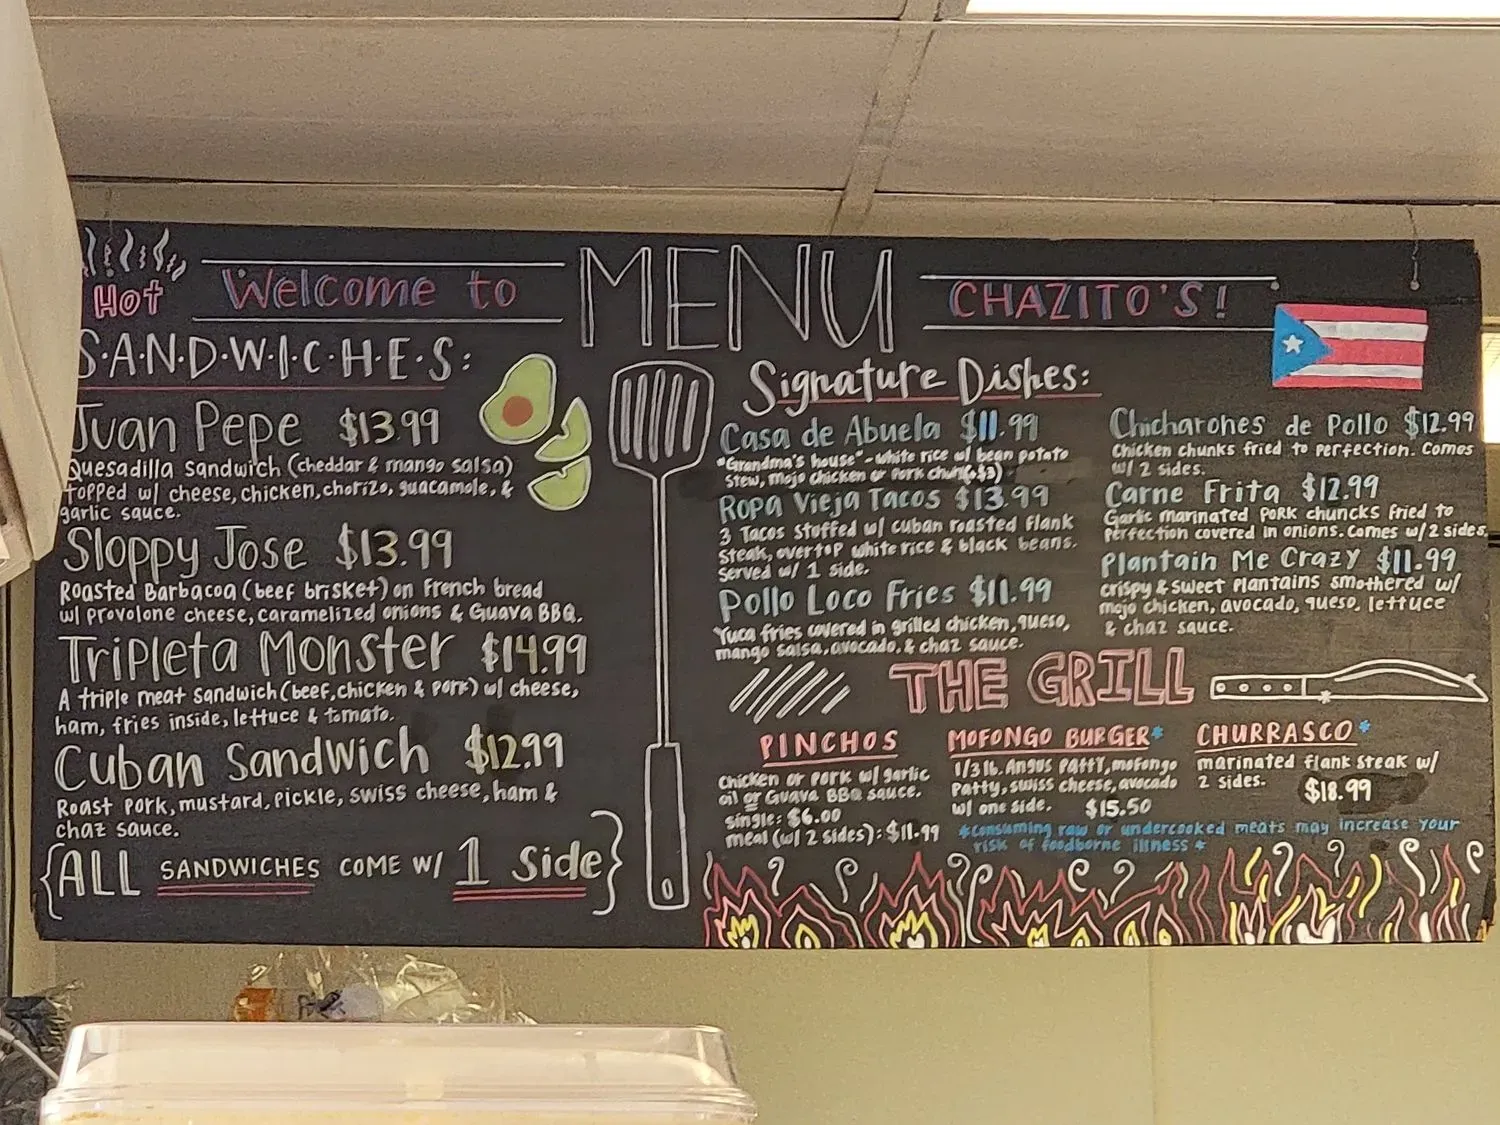 Welcome to MENU CHAZITO'S!
HOT
S·A·N·D·W·I·C·H·E·S:
Juan Pepe $13.99
Quesadilla sandwich (cheddar & mango salsa)
topped w/ cheese, chicken, chorizo, guacamole, &
garlic sauce.
Sloppy Jose $13.99
Roasted Barbacoa (beef brisket) on French bread
w/ provolone cheese, caramelized onions & Guava BBQ.
Tripleta Monster $14.99
A triple meat sandwich (beef, chicken & pork) w/ cheese,
ham, fries inside, lettuce & tomato.
Cuban Sandwich $12.99
Roast pork, mustard, pickle, swiss cheese, ham &
chaz sauce.
{ALL SANDWICHES COME W/ 1 Side}
Signature Dishes:
Casa de Abuela $11.99
"Grandma's house" - white rice w/ bean potato
stew, mojo chicken or pork
Ropa Vieja Tacos $13.99
3 Tacos stuffed w/ cuban roasted flank
steak, overtop white rice & black beans.
Served w/ 1 side.
Pollo Loco Fries $11.99
Yuca fries covered in grilled chicken, queso,
mango salsa, avocado, & chaz sauce.
Chicharones de Pollo $12.99
Chicken chunks fried to perfection. Comes
w/ 2 sides.
Carne Frita $12.99
Garlic marinated pork chuncks fried to
perfection covered in onions. Comes w/ 2 sides.
Plantain Me Crazy $11.99
crispy & sweet plantains smothered w/
mojo chicken, avocado, queso, lettuce
& chaz sauce.
THE GRILL
PINCHOS
Chicken or pork w/ garlic
oil or Guava BBQ sauce.
single: $6.00
meal (w/ 2 sides): $11.99
MOFONGO BURGER*
1/3 lb. Angus patty, mofongo
patty, swiss cheese, avocado
w/ one side. $15.50
CHURRASCO*
marinated flank steak w/
2 sides.
$18.99
*Consuming raw or undercooked meats may increase your
risk of foodborne illness*